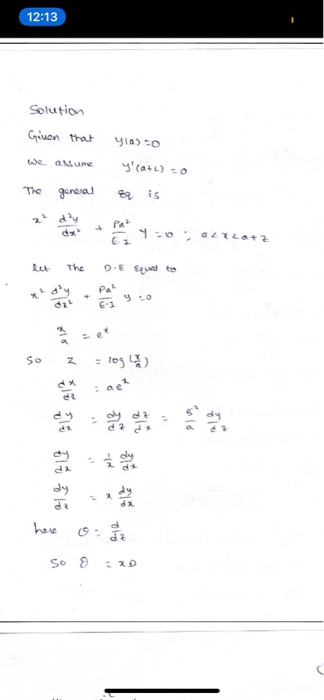 12:13
Solution
Given that y(a)=0
we assume y'(a+L)=0
The general Eq is
x² d²y/dx² + Pa²/E·I y = 0 ; a<x<a+z
Let The D·E Equal to
x² d²y/dx² + Pa²/E·I y = 0
x/a = eˣ
so z = log(x/a)
dx/dz = aeˣ
dy/dx = dy/dz dz/dx = 5²/a dy/dz
dy/dx = 1/x dy/dx
dy/dz = x dy/dx
here θ = d/dz
So θ = xD